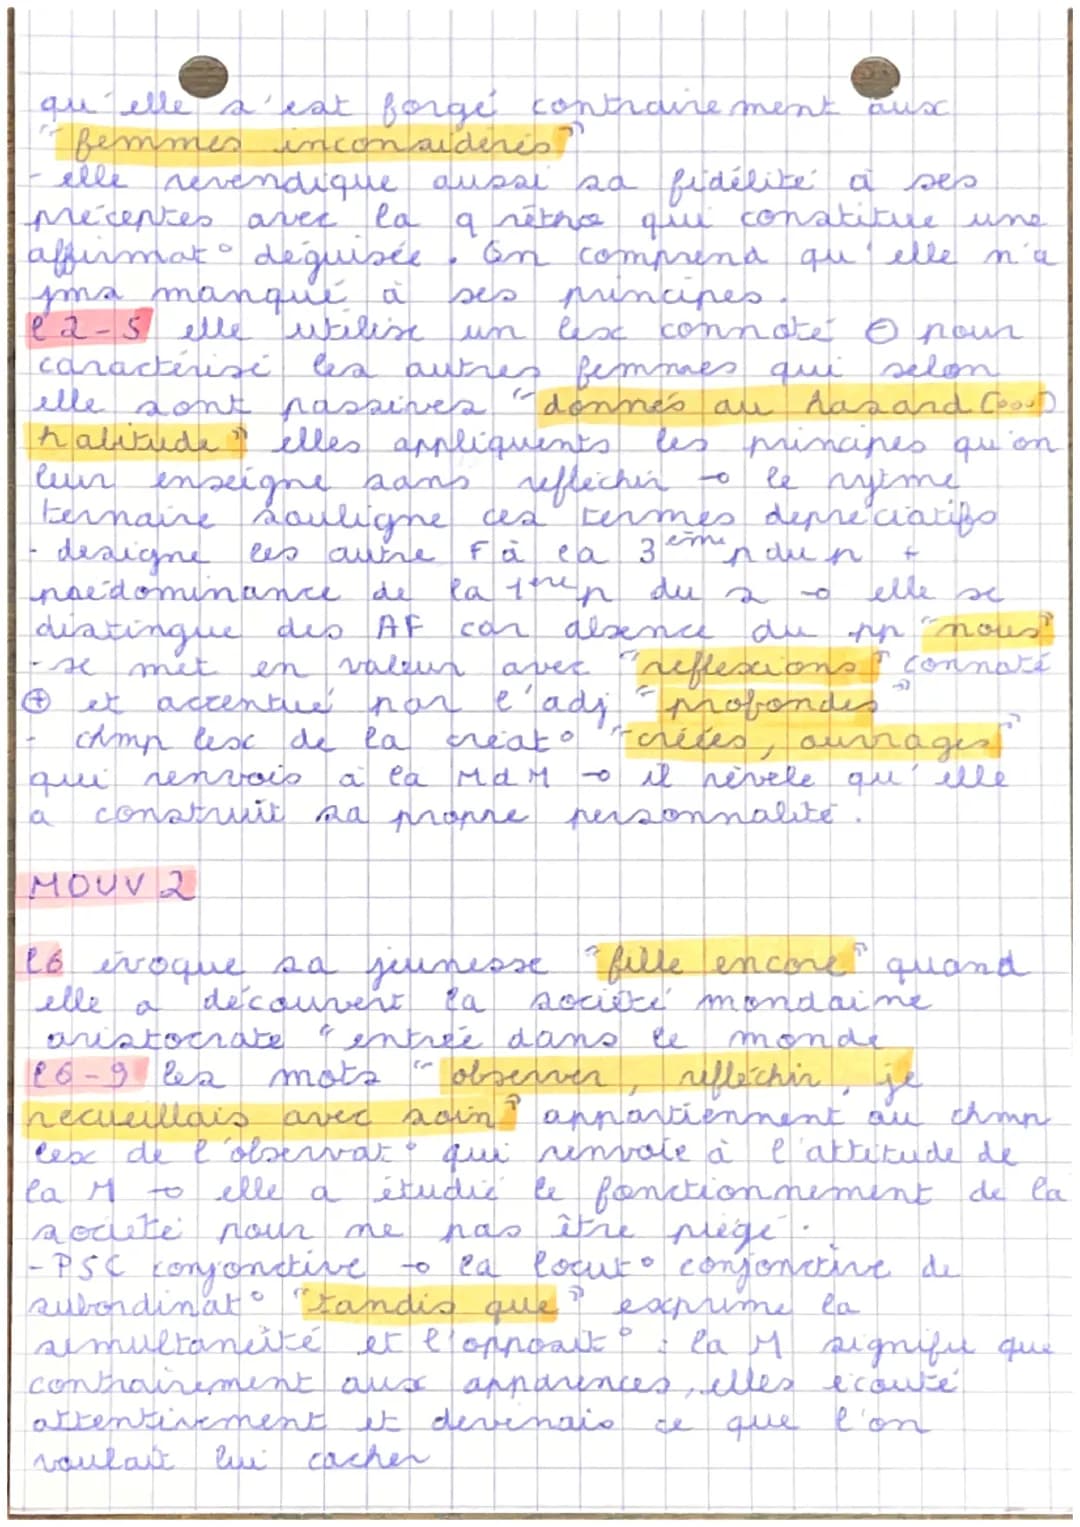 qu'elle s'est forgé contrairement aux
"femmes inconsidérés"
- elle revendique aussi sa fidélité à ses
préceptes avec la q rétho qui constitue une
affirmat° déguisée. On comprend qu'elle n'a
jms manqué à ses principes.
l 2-5 elle utilise un lex connoté ⊖ pour
caractérisé les autres femmes qui selon
elle sont passives "donnés au hasard (...)
habitude" elles appliquents les principes qu'on
leur enseigne sans reflechir → le rytme
ternaire souligne ces termes depréciatifs
- designe les autre F à la 3ème p du p +
predominance de la 1ère p du s → elle se
distingue des AF car absence du pp "nous"
- se met en valeur avec "reflexions" connoté
⊕ et accentué par l'adj "profondes"
- chmp lex de la créat° "créées, ouvrages"
qui renvois à la MdM → il révèle qu'elle
a construit sa propre personnalité.
MOUV 2
l6 évoque sa jeunesse "fille encore" quand
elle a découvert la société mondaine
aristocrate "entrée dans le monde
l6-9 les mots "observer, réfléchir, je
recueillais avec soin" appartiennent au chmp
lex de l'observat° qui renvoie à l'attitude de
la M → elle a étudié le fonctionnement de la
société pour ne pas être piégé.
- PSC conjonctive → la locut° conjonctive de
subordinat° "tandis que" exprime la
simultanéité et l'opposit° : la M signifie que
contrairement aux apparences, elles écouté
attentivement et devinais ce que l'on
voulait lui cacher